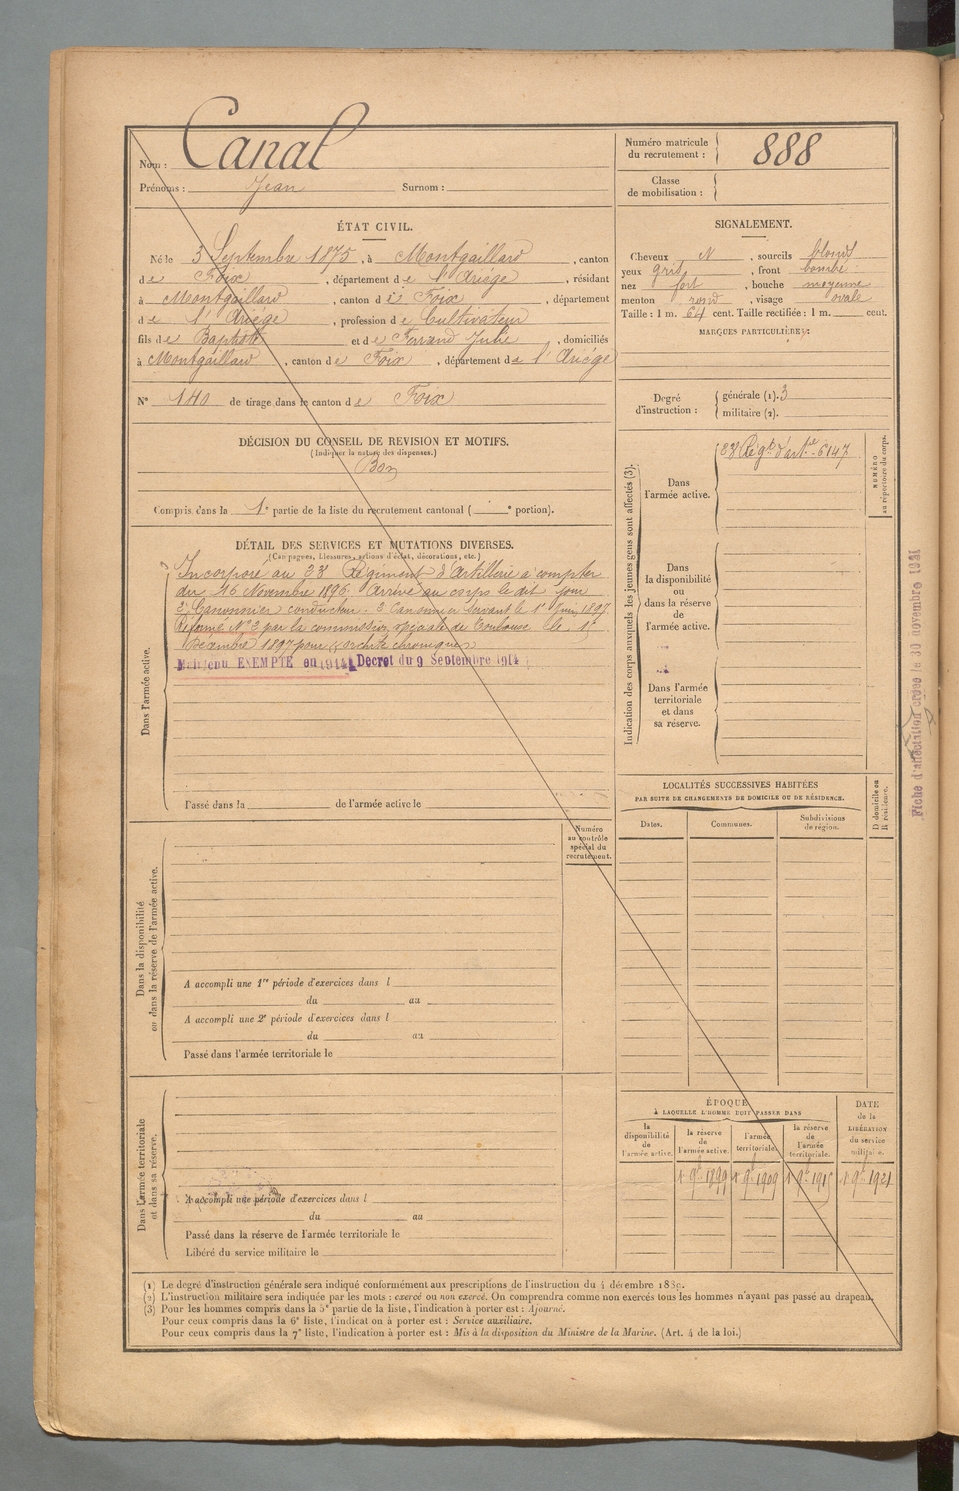 Nom : Canal
Prénoms : Jean Surnom :
Numéro matricule
du recrutement : 888
Classe
de mobilisation :
ÉTAT CIVIL.
Né le 3 Septembre 1875, à Montgaillard, canton
de Foix, département de l'Ariége, résidant
à Montgaillard, canton de Foix, département
de l'Ariége, profession de Cultivateur
fils de Baptiste et de Ferrand Julie, domiciliés
à Montgaillard, canton de Foix, département de l'Ariége
N° 140 de tirage dans le canton de Foix
SIGNALEMENT.
Cheveux N, sourcils blond
yeux gris, front bombé
nez fort, bouche moyenne
menton rond, visage ovale
Taille : 1 m. 64 cent. Taille rectifiée : 1 m. cent.
MARQUES PARTICULIÈRES :
Degré
d'instruction :
générale (1). 3
militaire (2).
DÉCISION DU CONSEIL DE REVISION ET MOTIFS.
(Indiquer la nature des dispenses.)
Bon
Compris dans la 1e partie de la liste du recrutement cantonal ( e portion).
DÉTAIL DES SERVICES ET MUTATIONS DIVERSES.
(Campagnes, blessures, actions d'éclat, décorations, etc.)
Dans l'armée active.
Incorporé au 23e Régiment d'Artillerie à compter
du 15 Novembre 1896. Arrivé au corps le dit jour
2e Canonnier conducteur. 2e Canonnier servant le 1er Juin 1897.
Réformé N° 2 par la commission spéciale de Toulouse le 1er
Décembre 1897 pour orchite chronique
Maintenu EXEMPTE en 1914 Decret du 9 Septembre 1914
Passé dans la de l'armée active le
Indication des corps auxquels les jeunes gens sont affectés (3).
Dans
l'armée active.
23e Régt d'artie 6147
NUMÉRO
au répertoire du corps.
Dans
la disponibilité
ou
dans la réserve
de
l'armée active.
Dans l'armée
territoriale
et dans
sa réserve.
Fiche d'affectation créée le 30 novembre 1921
LOCALITÉS SUCCESSIVES HABITÉES
PAR SUITE DE CHANGEMENTS DE DOMICILE OU DE RÉSIDENCE.
Dates. Communes. Subdivisions
de région.
D domicile ou
R résidence.
Numéro
au contrôle
spécial du
recrutement.
Dans la disponibilité
ou dans la réserve de l'armée active.
A accompli une 1re période d'exercices dans l
du au
A accompli une 2e période d'exercices dans l
du au
Passé dans l'armée territoriale le
Dans l'armée territoriale
et dans sa réserve.
A accompli une période d'exercices dans l
du au
Passé dans la réserve de l'armée territoriale le
Libéré du service militaire le
ÉPOQUE
À LAQUELLE L'HOMME DOIT PASSER DANS
la
disponibilité
de
l'armée active.
la réserve
de
l'armée active.
l'armée
territoriale.
la réserve
de
l'armée
territoriale.
DATE
de la
LIBÉRATION
du service
militaire.
1 9bre 1899 1 9bre 1909 1 9bre 1915 1 9bre 1921
(1) Le degré d'instruction générale sera indiqué conformément aux prescriptions de l'instruction du 4 décembre 1889.
(2) L'instruction militaire sera indiquée par les mots : exercé ou non exercé. On comprendra comme non exercés tous les hommes n'ayant pas passé au drapeau.
(3) Pour les hommes compris dans la 5e partie de la liste, l'indication à porter est : Ajourné.
Pour ceux compris dans la 6e liste, l'indication à porter est : Service auxiliaire.
Pour ceux compris dans la 7e liste, l'indication à porter est : Mis à la disposition du Ministre de la Marine. (Art. 4 de la loi.)